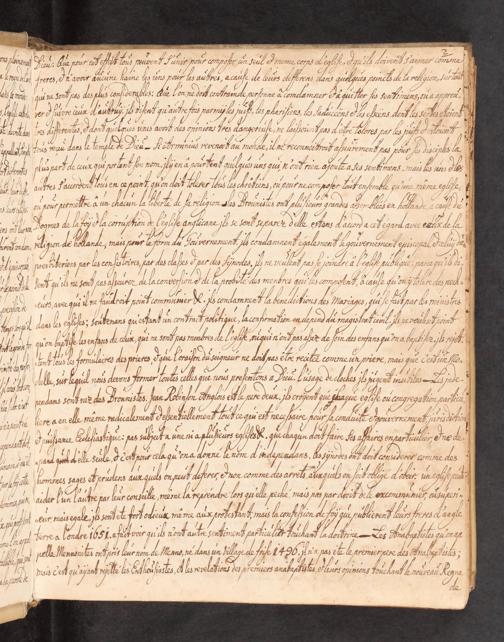 Dieu: Que pour cet effet tous peuvent s'unir pour composer un seul & meme corps d'eglise, & qu'ils doivent s'aymer comme
freres, & n'avoir aucune haine les uns pour les autres, a cause de leurs differens dans quelques points de la religion, sur tout
qui ne sont pas des plus considerables: que l'on ne doit contraindre personne a condamner & a quitter ses sentimens, ou a approu
ver & suivre ceux d'autruy. ils disent qu'autre fois parmi les juifs, les pharisiens, les saduceens & les esseens dont les sectes étoient
tres differentes, & dont quelques unes avoit des opinions tres dangereuses, ne laissoient pas d'etre tolerés par les juifs & etoient
tous receu dans le temple de Dieu. Si Arminius revenoit au monde, il ne reconnoitroit asseurement pas pour ses disciples la
plus part de ceux qui portent son nom, il y en a pourtent quelques uns qui n'ont rien ajouté a ses sentimens, mais les uns & les
autres s'accordent tous en ce point, qu'on doit tolerer tous les chretiens, ou pour ne composer tout ensemble qu'une même eglise,
ou pour permettre a un chacun la liberté de sa religion. Les Brounistes ont plusieurs grandes assemblées en hollande
Dogmes de la foy & la corruption de l'eglise anglicane, ils se sont separez d'elle etans d'acord a cet egard avec ceux de la
religion de hollande, mais pour la forme du Gouvernement, ils condamnent egalement le gouvernement episcopal, & celui des
presbiteriens par les consistoires, par des classes & par des synodes, ils ne veullent pas se joindre a l'eglise publique, parce qu'ils di
sent qu'ils ne sont pas asseurez de la conversion & de la probité des membres qui les composent, a cause qu'on y tolere des pech
eurs, avec qui il ne faudroit point communier &. ils condamnent la benediction des Mariages, qui se fait par les ministres
dans les eglises; soutenans qu'estant un contract politique, la confirmation en depend du magistrat civil, ils ne veulent point
qu'on baptise les enfans de ceux, qui ne sont pas membres de l'eglise, ni qui n'ont pas assez de soin des enfans qu'on a baptisez, ils rejet
tent tous les formulaires des prieres, & que l'oraison du seigneur ne doit pas etre recitée comme une priere, mais que c'est un
delle, sur lequel nous devons former toutes celles que nous presentons a Dieu. L'usage de cloches ils jugent inutiles Les inde
pendans sont nez des Brounistes. Jean Robinson Anglois est le pere deux, ils croyent que chaque eglise, ou congregation particu
liere a en elle même radicalement & essentiellement tout ce qui est necessaire pour sa conduite & gouvernement, jurisdiction
& puissance Ecclesiastique: pas subject a une ni a plusieurs eglises &, que chaqun doit faire ses affaires en particulier, & ne de
pand que d'elle seule, & c'est pour cela qu'on a donné le nom d'independans, les synodes ils doit considerer comme des
hommes sages et prudens auxquels on peut deferer, & non comme des arrets auxquels on soit obligé d'obeir. un eglise peut
aider l'un l'autre par leur conseille, meme la reprendre lors qu'elle peché, mais pas par droit de le excommunier ou superi
eur, mais egale, ils sont ete fort odieux meme aux protestant, mais la confession de foy que publierent leurs freres d'angle
terre a Londre 1651. a fait voir qu'ils n'ont autre sentiment particulier touchant la doctrine Les Anabaptistes qu'on ap
pelle Mennonites ont pris leur nom de Menno, né dans un village de frise 1490. il n'a pas eté le premier pere des Anabaptistes;
mais c'est qu'ayant rejetté les Enthousiastes, & les revelations des premiers anabaptistes, & leurs opinions touchant le nouveau Regne
de